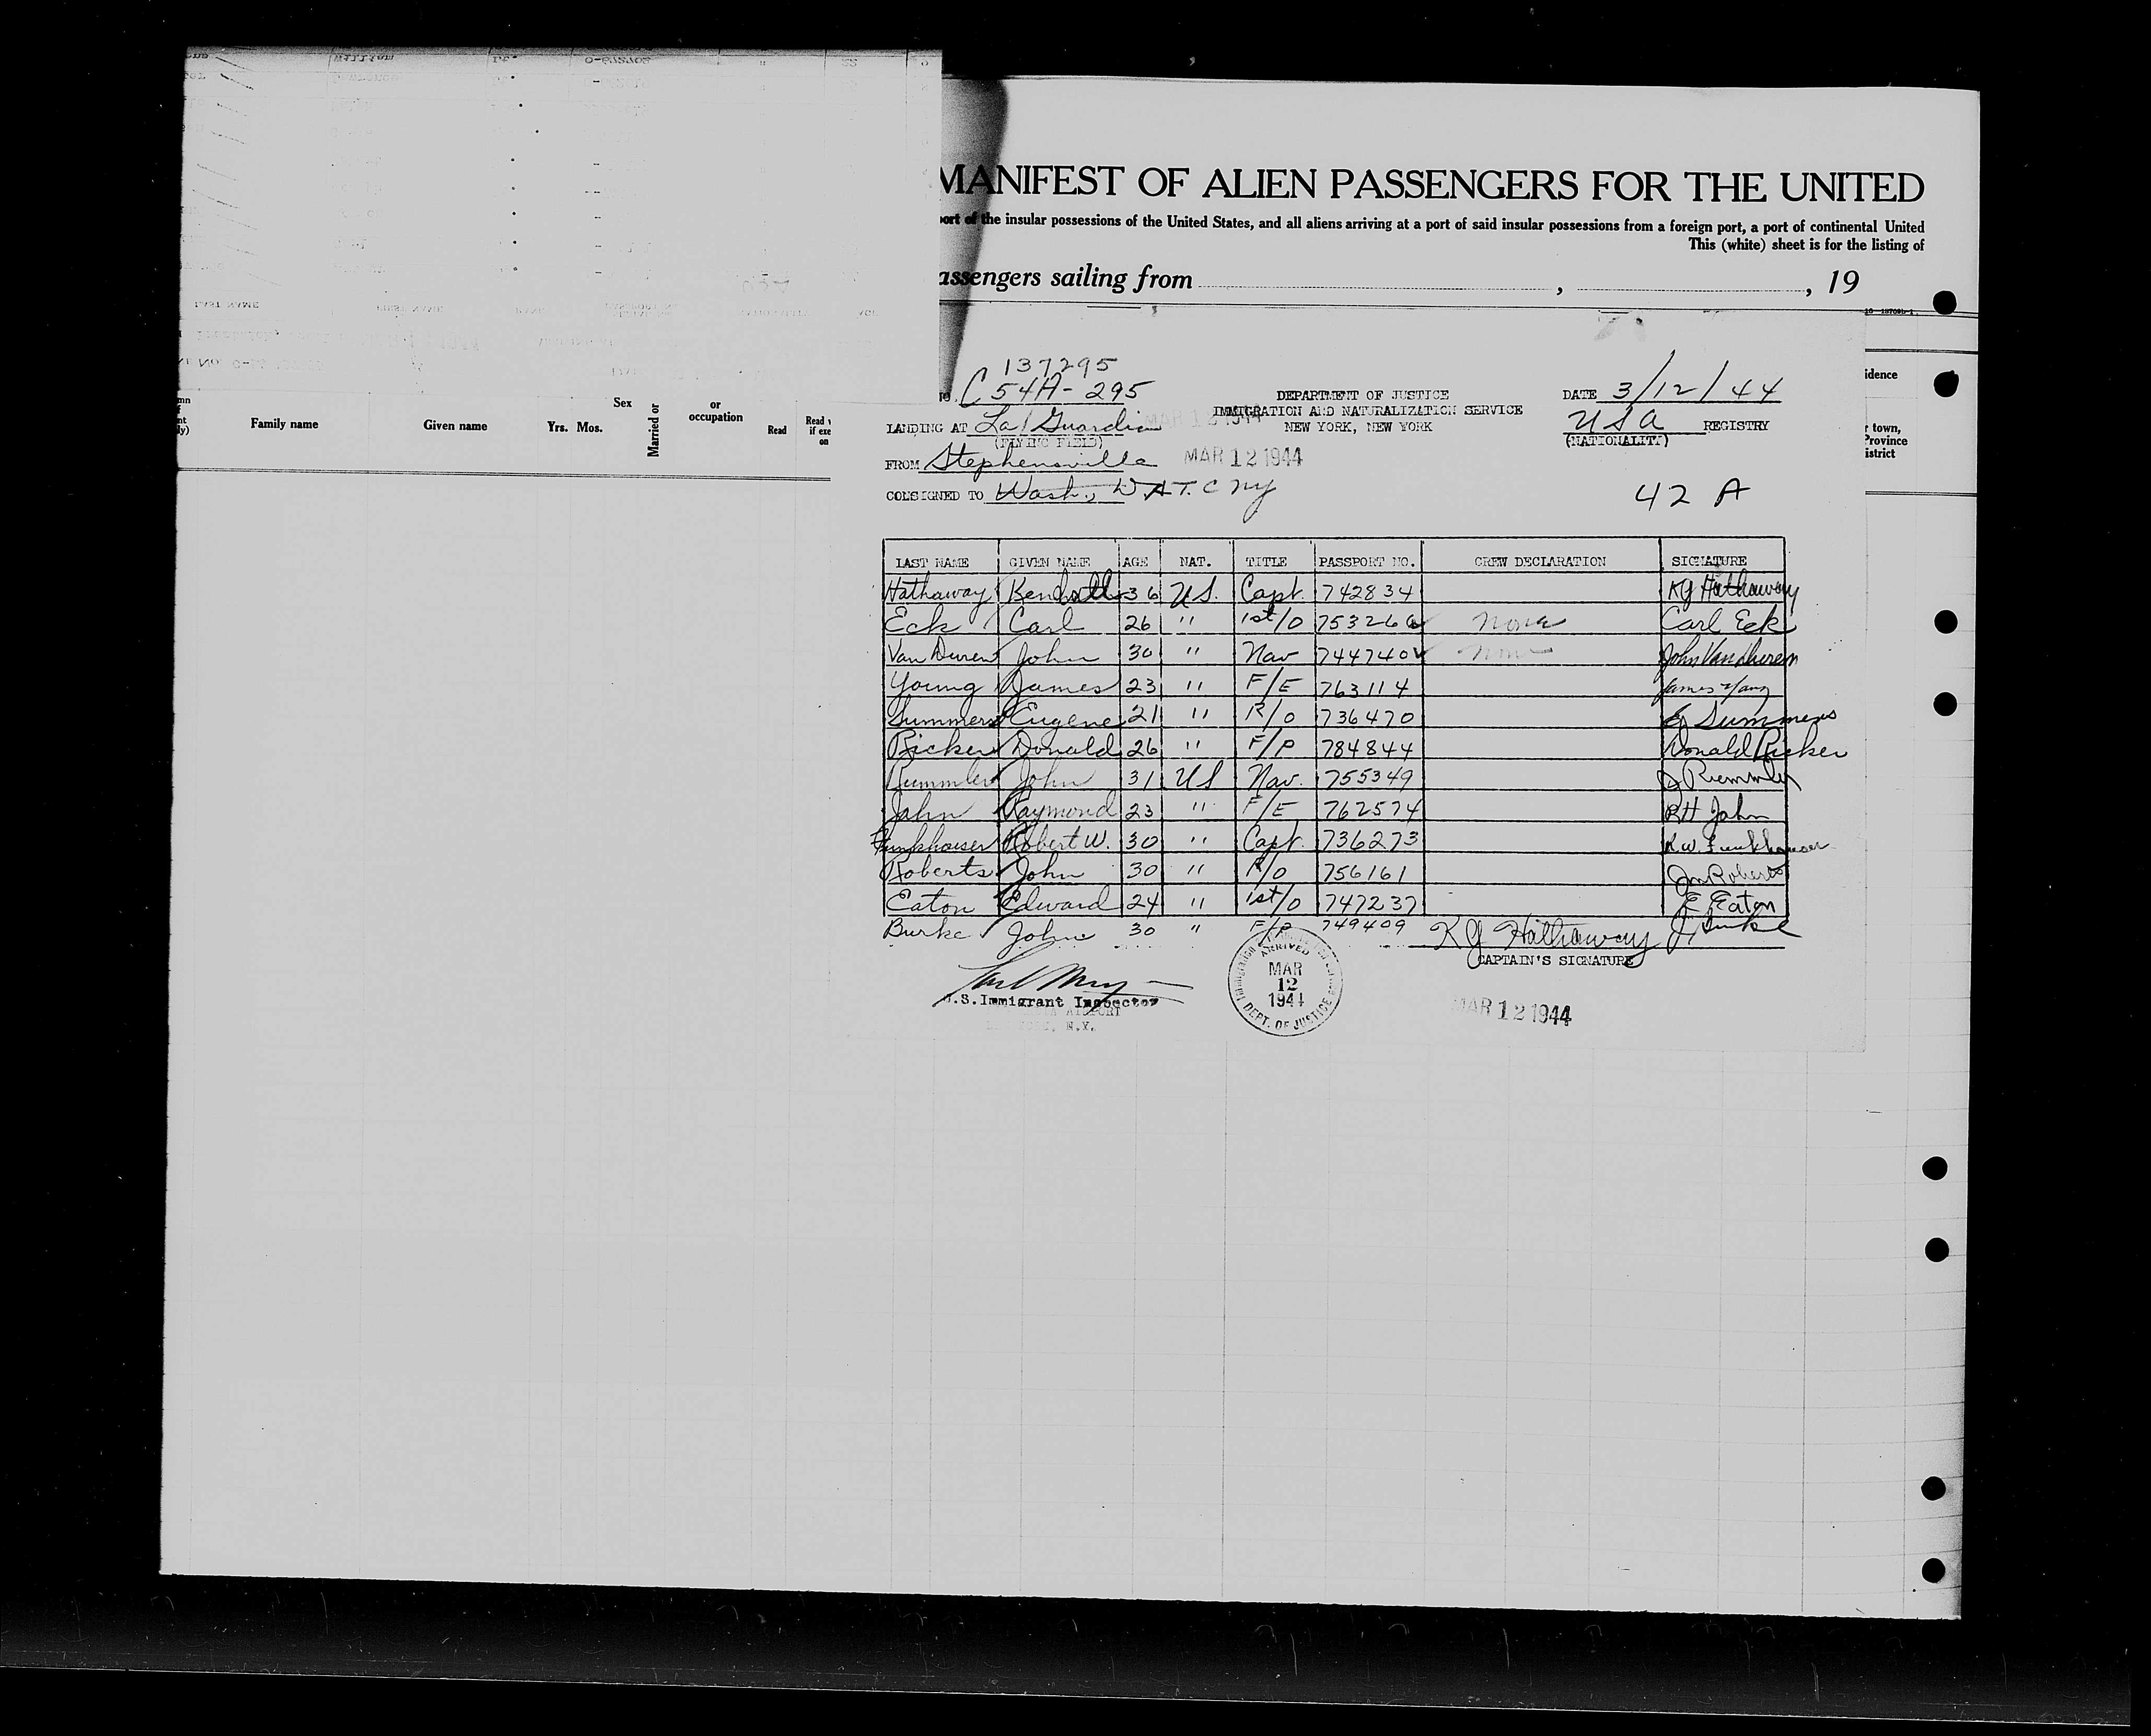 MANIFEST OF ALIEN PASSENGERS FOR THE UNITED
port of the insular possessions of the United States, and all aliens arriving at a port of said insular possessions from a foreign port, a port of continental United
This (white) sheet is for the listing of
assengers sailing from , , 19
137295
NO. C54A-295
DEPARTMENT OF JUSTICE
IMMIGRATION AND NATURALIZATION SERVICE
NEW YORK, NEW YORK
DATE 3/12/44
LANDING AT La Guardia
(FLYING FIELD)
MAR 12 1944
USA REGISTRY
(NATIONALITY)
FROM Stephensville MAR 12 1944
CONSIGNED TO Wash., D ATC NY
42 A
idence
r town,
Province
istrict
Family name Given name Yrs. Mos. Sex Married or or occupation Read Read
if exe
on
LAST NAME GIVEN NAME AGE NAT. TITLE PASSPORT NO. CREW DECLARATION SIGNATURE
Hathaway Kendall 36 U.S. Capt. 742834 KG Hathaway
Eck Carl 26 " 1st/O 753260 None Carl Eck
Van Duren John 30 " Nav 744740 None John Van Duren
Young James 23 " F/E 763114 James Young
Summers Eugene 21 " R/O 736470 E Summers
Ricker Donald 26 " F/P 784844 Donald Ricker
Rummler John 31 US Nav. 755349 J Rummler
Jahn Raymond 23 " F/E 762574 RH Jahn
Funkhouser Robert W. 30 " Capt. 736273 R.W. Funkhouser
Roberts John 30 " R/O 756161 Jn Roberts
Eaton Edward 24 " 1st/O 747237 E Eaton
Burke John 30 " F/P 749409 J. Burke
KG Hathaway
CAPTAIN'S SIGNATURE
U.S. Immigrant Inspector
AIRPORT
N.Y.
ARRIVED
MAR
12
1944
DEPT. OF JUSTICE
MAR 12 1944